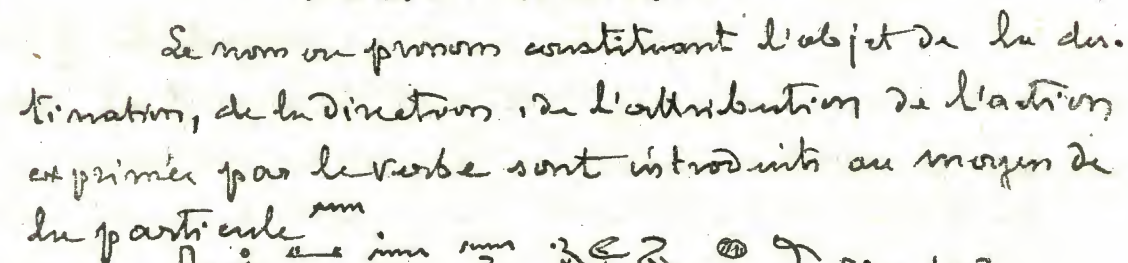 Le nom ou pronom constituant l'objet de la des-
tination, de la direction, de l'attribution de l'action
exprimée par le verbe sont introduits au moyen de
la particule 𓈖